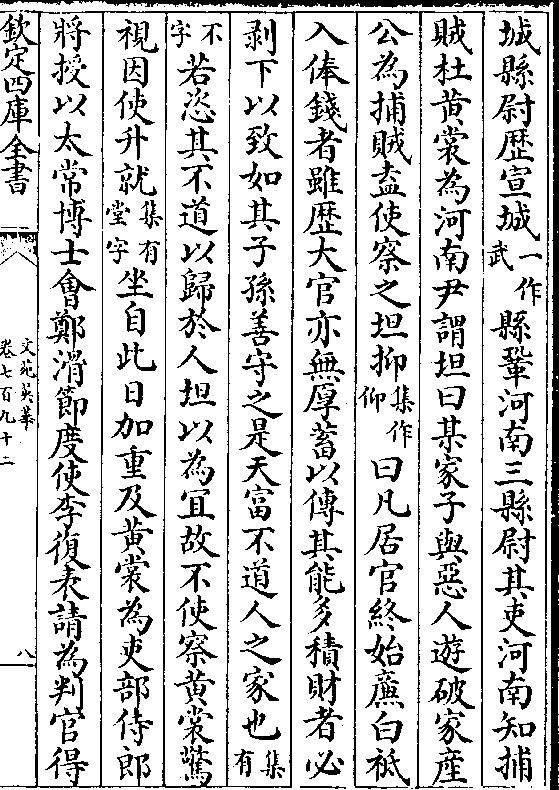 城縣尉歴宣城一作武縣鞏河南三縣尉其吏河南知捕
賊杜黄裳為河南尹謂坦曰某家子與惡人遊破家産
公為捕賊盍使察之坦抑集作仰曰凡居官終始㢘白祗
入俸錢者雖歴大官亦無厚蓄以傳其能多積財者必
剥下以致如其子孫善守之是天富不道人之家也集有
不字若恣其不道以歸於人坦以為宜故不使察黄裳驚
視因使升就集有堂字坐自此日加重及黄裳為吏部侍郎
將授以太常博士會鄭滑節度使李復表請為判官得
欽定四庫全書
文苑英華
卷七百九十二
八